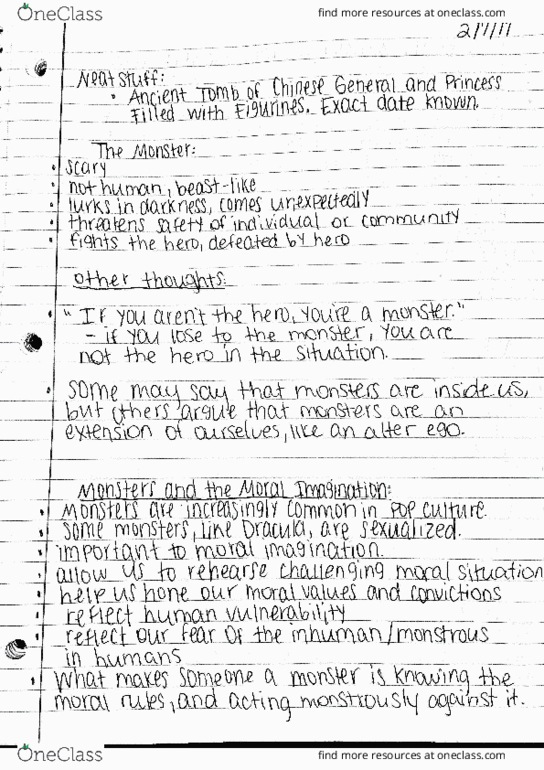 OneClass
find more resources at oneclass.com
Neat stuff:
• Ancient Tomb of Chinese General and Princess
Filled with Figurines. Exact date known.
The Monster:
• scary
• not human, beast-like
• lurks in darkness, comes unexpectedly
• threatens safety of individual or community
• fights the hero, defeated by hero
other thoughts:
• "If you aren't the hero, you're a monster."
- if you lose to the monster, you are
not the hero in the situation.
• some may say that monsters are inside us,
but others argue that monsters are an
extension of ourselves, like an alter ego.
Monsters and the Moral Imagination:
• Monsters are increasingly common in pop culture
• some monsters, like Dracula, are sexualized.
• important to moral imagination.
• allow us to rehearse challenging moral situation
• help us hone our moral values and convictions
• reflect human vulnerability
• reflect our fear of the inhuman/monstrous
in humans
• What makes someone a monster is knowing the
moral rules, and acting monstrously against it.
OneClass
find more resources at oneclass.com